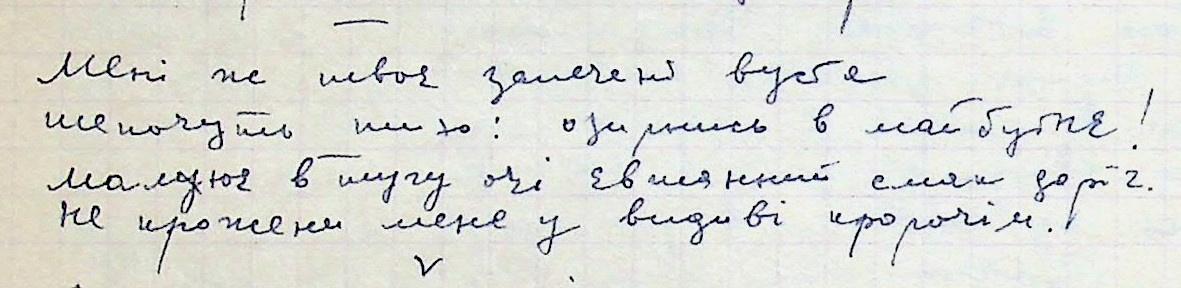 Мені не твоє запечені вуста
шепочуть тихо: озирнись в майбутнє!
Малює в тугу очі євшанний смак доріг.
Не прожени мене у видиві пророчім.